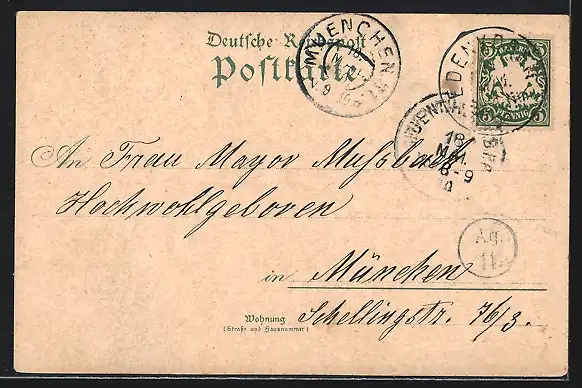 Deutsche Reichspost
Postkarte
MUENCHEN
BAYERN
5 5
PFENNIG
18
MAI
8-9
An Frau Mayor Mussbach
Hochwohlgeboren
Ag.
11.
in München
Wohnung
(Straße und Hausnummer)
Schellingstr. 76/3.